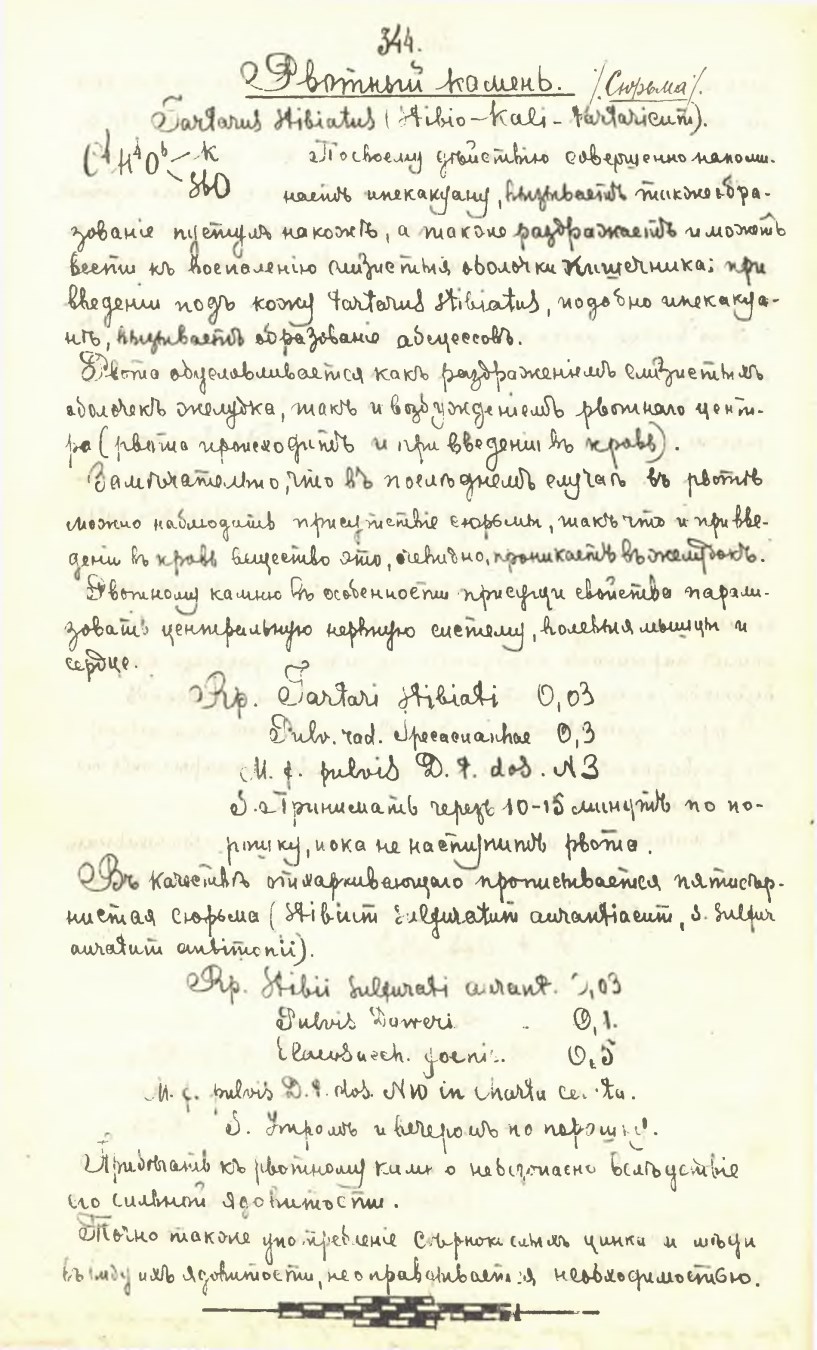 344.
Рвотный камень. /Сюрьма/.
Tartarus stibiatus (Stibio-Kali-tartaricum).
C⁴H⁴O⁶ K SbO
По своему дѣйствію совершенно напоми-
наетъ ипекакуану, вызываетъ также обра-
зованіе пустулъ на кожѣ, а также раздражаетъ и можетъ
вести къ воспаленію слизистыя оболочки кишечника; при
введеніи подъ кожу Tartarus stibiatus, подобно ипекакуа-
нѣ, вызываетъ образованіе абсцессовъ.
Рвота обусловливается какъ раздраженіемъ слизистыхъ
оболочекъ желудка, такъ и возбужденіемъ рвотнаго цент-
ра (рвота происходитъ и при введеніи въ кровь).
Замѣчательно, что въ послѣднемъ случаѣ въ рвотѣ
можно наблюдать присутствіе сюрьмы, такъ что и при вве-
деніи въ кровь вещество это, очевидно, проникаетъ въ желудокъ.
Рвотному камню въ особенности присущи свойства парали-
зовать центральную нервную систему, волевыя мышцы и
сердце.
Rp. Tartari stibiati 0,03
Pulv. rad. Ipecacuanhae 0,3
M. f. pulvis D. t. dos. N 3
S. Принимать черезъ 10-15 минутъ по по-
рошку, пока не наступитъ рвота.
Въ качествѣ отхаркивающаго прописывается пятисѣр-
нистая сюрьма (Stibium sulfuratum aurantiacum, s. Sulfur
auratum antimonii).
Rp. Stibii sulfurati aurant. 0,03
Pulvis Doweri 0,1.
Elaeosacch. foenic. 0,5
M. f. pulvis D. t. dos. N 10 in charta cerata.
S. Утромъ и вечеромъ по порошку.
Прибѣгать къ рвотному камню небезопасно вслѣдствіе
его сильной ядовитости.
Точно также употребленіе сѣрнокислыхъ цинка и мѣди
въ виду ихъ ядовитости, не оправдывается необходимостью.